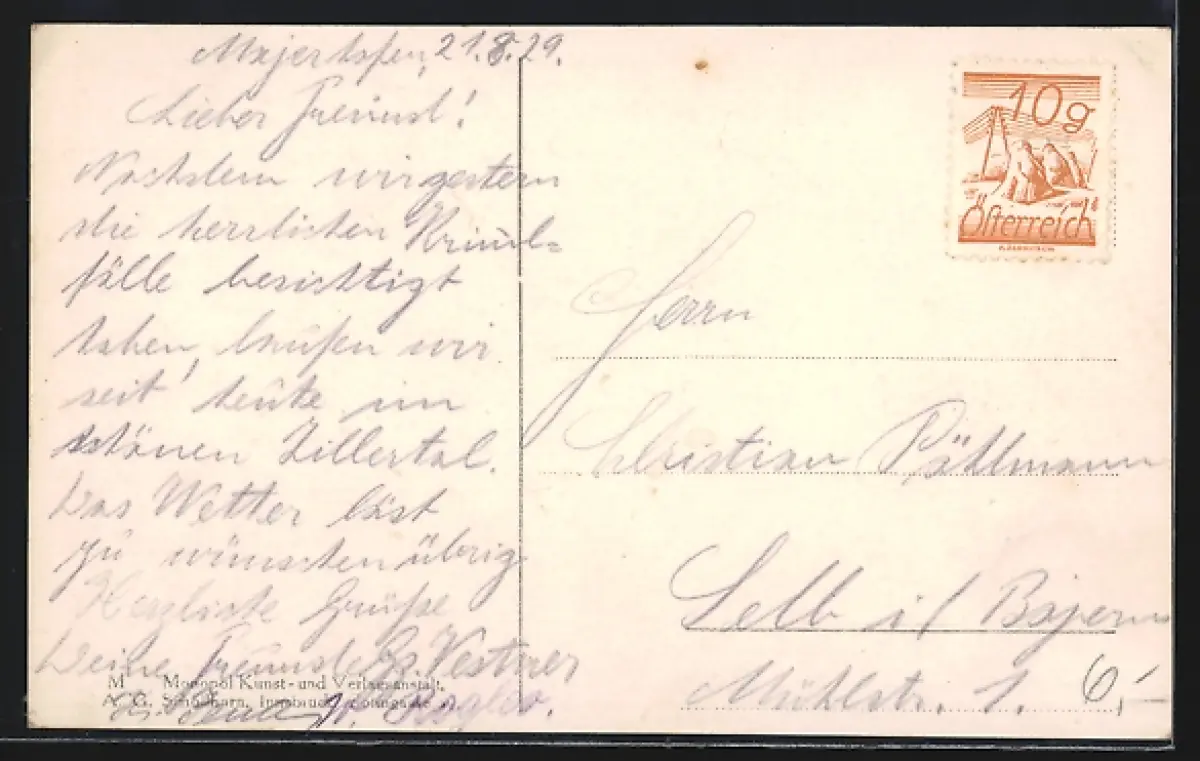 Majerhofen, 21.8.29.
Lieber Freund!
Nachdem wir gestern
die herrlichen Kriml-
fälle besichtigt
haben, laufen wir
seit heute im
schönen Zillertal.
Das Wetter läst
zu wünschen übrig
Herzliche Grüße
Deine Freunde
M Monopol Kunst- und Verlagsanstalt,
A. G. Schöllhorn, Innsbruck,
10g
Österreich
Herrn
Christian Pöhlmann
Selb i/ Bayern
Mühlstr. 1.
6,-